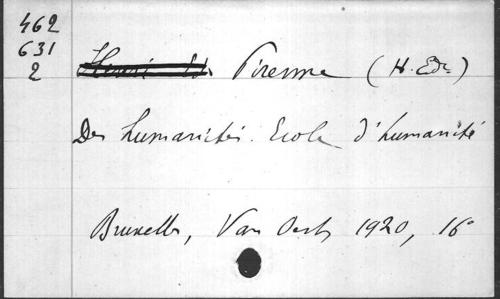 462
631
2
Pirenne (H. Ed.)
Des humanités. Ecole d'humanité
Bruxelles, Van Oest, 1920, 16°